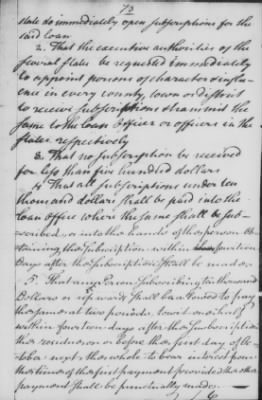 72
state do immediately open subscriptions for the
said loan
2. That the executive authorities of the
several states be requested immediately
to appoint persons of character & influ
ence in every county, town or district
to receive subscriptions & transmit the
same to the loan officer or officers in the
states respectively
3. That no subscription be received
for less than five hundred dollars
4 That all subscriptions under ten
thousand dollars shall be paid into the
loan office where the same shall be sub
scribed, or into the hands of the person ob
taining the subscription within fourteen
days after the subscription shall be made
5. That any Person subscribing ten thousand
Dollars or upwards shall be allowed to pay
the same at two periods, to wit one
within fourteen days after the subscription
the residue on or before the first day of Oc
tober next the whole to bear interest from
the time of the first payment provided the other
payment shall be punctually made